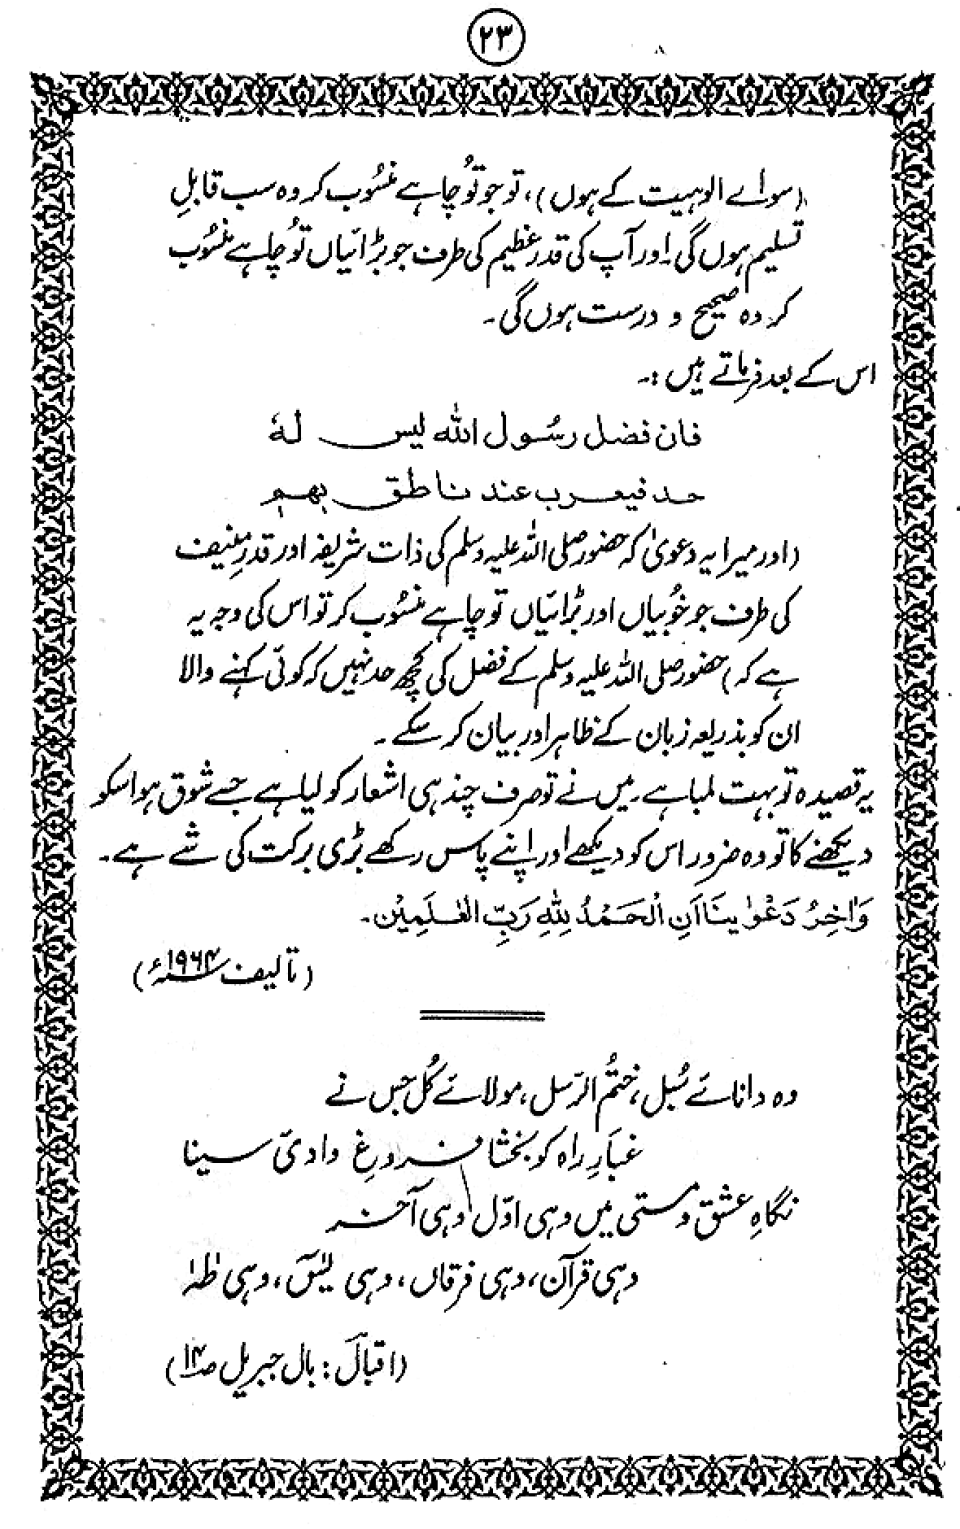 ۲۳
(سوائے الوہیت کے ہوں)، تو جو تُو چاہے منسُوب کر وہ سب قابلِ
تسلیم ہوں گی۔ اور آپ کی قدرِ عظیم کی طرف جو بڑائیاں تُو چاہے منسُوب
کر وہ صحیح و درست ہوں گی۔
اس کے بعد فرماتے ہیں :۔
فان فضل رسُول اللہ لیس لہٗ
حد فیعرب عند ناطق بھم
(اور میرا یہ دعویٰ کہ حضور صلی اللہ علیہ وسلم کی ذات شریفہ اور قدرِ منیف
کی طرف جو خُوبیاں اور بڑائیاں تو چاہے منسُوب کر تو اس کی وجہ یہ
ہے کہ) حضور صلی اللہ علیہ وسلم کے فضل کی کچھ حد نہیں کہ کوئی کہنے والا
ان کو بذریعہ زبان کے ظاہر اور بیان کر سکے۔
یہ قصیدہ تو بہت لمبا ہے۔ میں نے تو صرف چند ہی اشعار کو لیا ہے جسے شوق ہو اسکو
دیکھنے کا تو وہ ضرور اس کو دیکھے اور اپنے پاس رکھے بڑی برکت کی شے ہے۔
وَاٰخِرُ دَعْوٰینَا اَنِ الْحَمْدُ لِلّٰہِ رَبِّ الْعٰلَمِیْن۔
(تالیف ۱۹۶۴ء)
وہ دانائے سُبل، ختمُ الرّسل، مولائے کُل جس نے
غبارِ راہ کو بخشا فروغِ وادیٔ سینا
نگاہِ عشق و مستی میں وہی اوّل وہی آخر
وہی قرآن، وہی فرقاں، وہی یٰسٓ، وہی طٰہٰ
(اقبال : بال جبریل صـ۱۴)